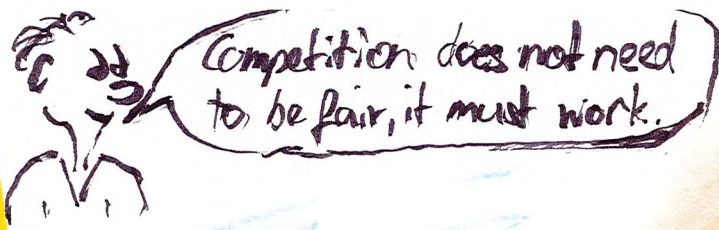 Competition does not need
to be fair, it must work.